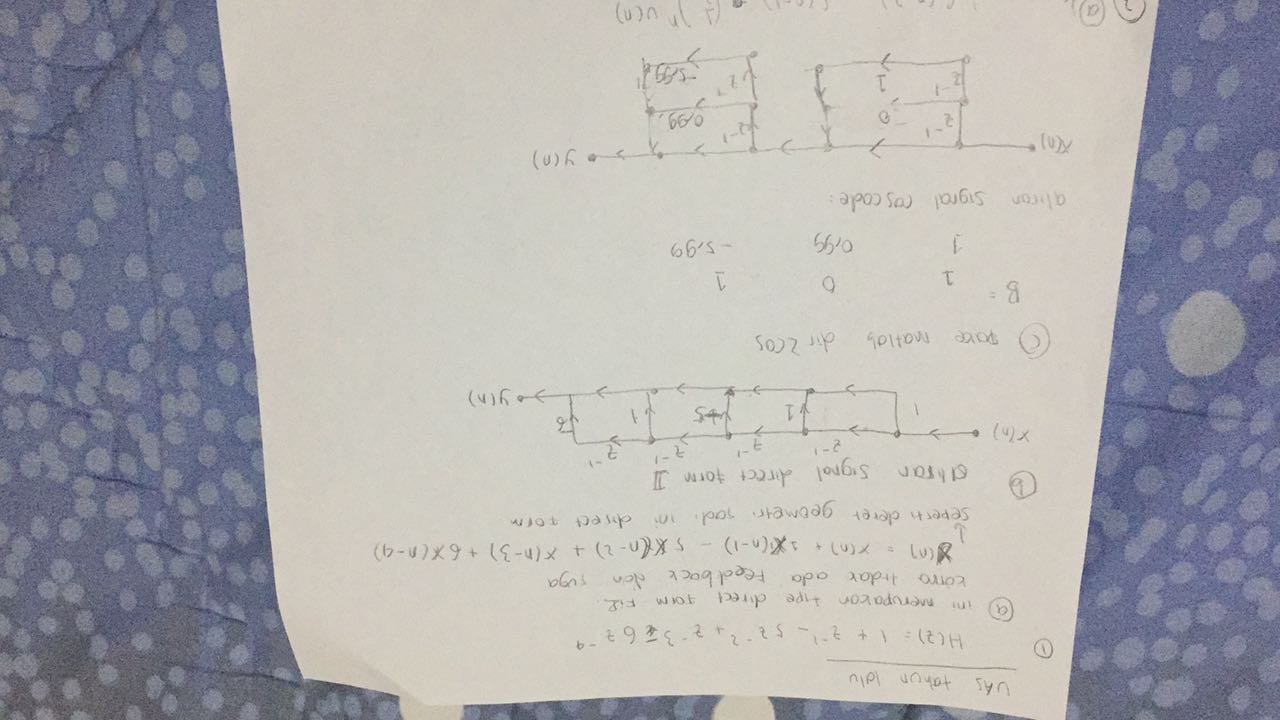 UAS tahun lalu
① H(z) = 1 + z⁻¹ - 5z⁻² + z⁻³ - 6z⁻⁴
ⓐ ini merupakan tipe direct form FIR.
karna tidak ada feedback dan juga
y(n) = x(n) + 1x(n-1) - 5x(n-2) + x(n-3) + 6x(n-4)
↓
seperti deret geometri jadi ini direct form
ⓑ aliran signal direct form II
z⁻¹ z⁻¹ z⁻¹ z⁻¹
x(n)
1 1 -5 1 -6
y(n)
ⓒ pake matlab dir2cas
B =
1 0 1
1 0,99 -5,99
aliran signal cascade:
x(n) y(n)
z⁻¹ 0 z⁻¹ 0,99
z⁻¹ 1 z⁻¹ -5,99
2 ⓐ
)ⁿ u(n)